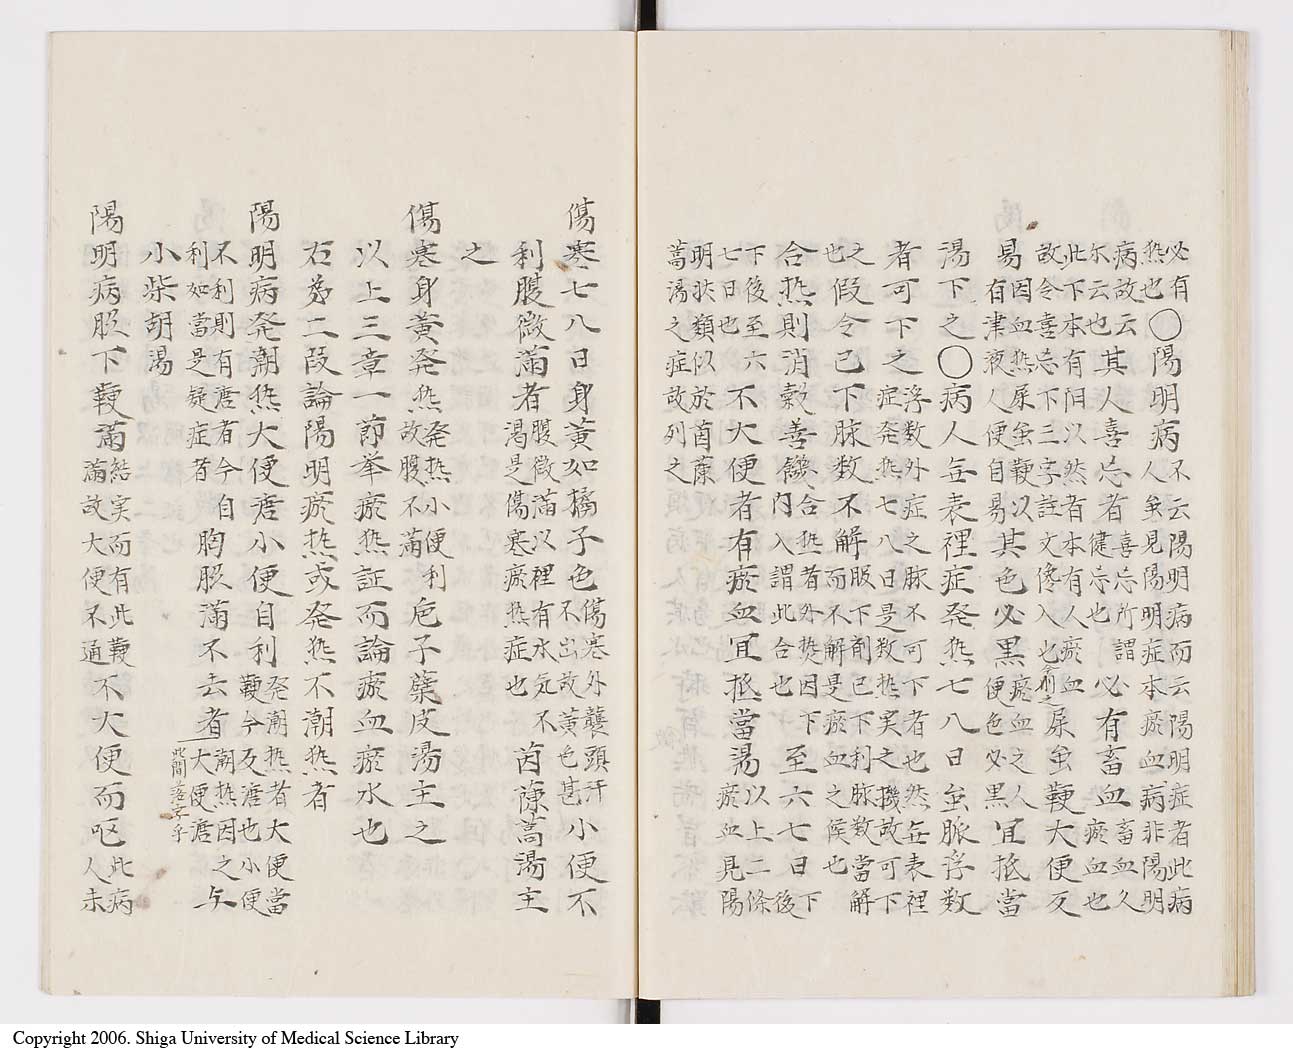 必有热也◯陽明病不云陽明病而云陽明症者此病人矣見陽明症本瘀血病非陽明
病故云尓云也其人喜忘者喜忘所謂健忘也必有畜血畜血久瘀血也
此下本有阳以然者本有人瘀血故令喜忘下三字註文儳入也今削之屎虽鞕大便反
易因血热屎虽鞕以有津液人便自易其色必黒瘀血之人便色必黒宜抵當
湯下之◯病人無表裡症発热七八日虽脈浮数
者可下之浮数外症之脉不可下者也然無表裡症発热七八日是数热実之機故可下
之也假令已下脉数不解服下剤已下利脉数當解而不解是瘀血之候也
合热則消穀善饑合热者外热因下内入謂此合也至六七日下後
下後至六七日也不大便者有瘀血宜抵當湯以上二條瘀血見陽
明状類似於茵蔯蒿湯之症故列之
傷寒七八日身黃如橘子色傷寒外襲頭汗不出故黃色甚小便不
利腹微滿者腹微滿以裡有水気不渴是傷寒瘀热症也茵蔯蒿湯主
之
傷寒身黃発热発热小便利故腹不滿卮子蘗皮湯主之
以上三章一節挙瘀热証而論瘀血瘀水也
右第二段論陽明瘀热或発热不潮热者
陽明病発潮热大便溏小便自利発潮热者大便當鞕今反溏也小便
不利則有溏者今自利如當是疑症者胸脇滿不去者潮热因之大便溏与
此間落字乎
小柴胡湯
陽明病脇下鞕滿結実而有此鞕滿故大便不通不大便而呕此病人未